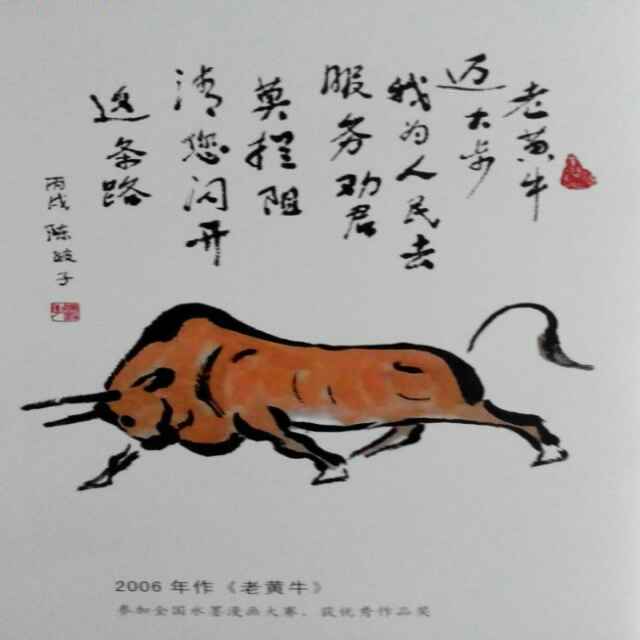 老黄牛
迈大步
我为人民去
服务劝君
莫阻
请您闪开
这条路
丙戌 陈子
2006 年作《老黄牛》
参加全国水墨漫画大赛、获优秀作品奖